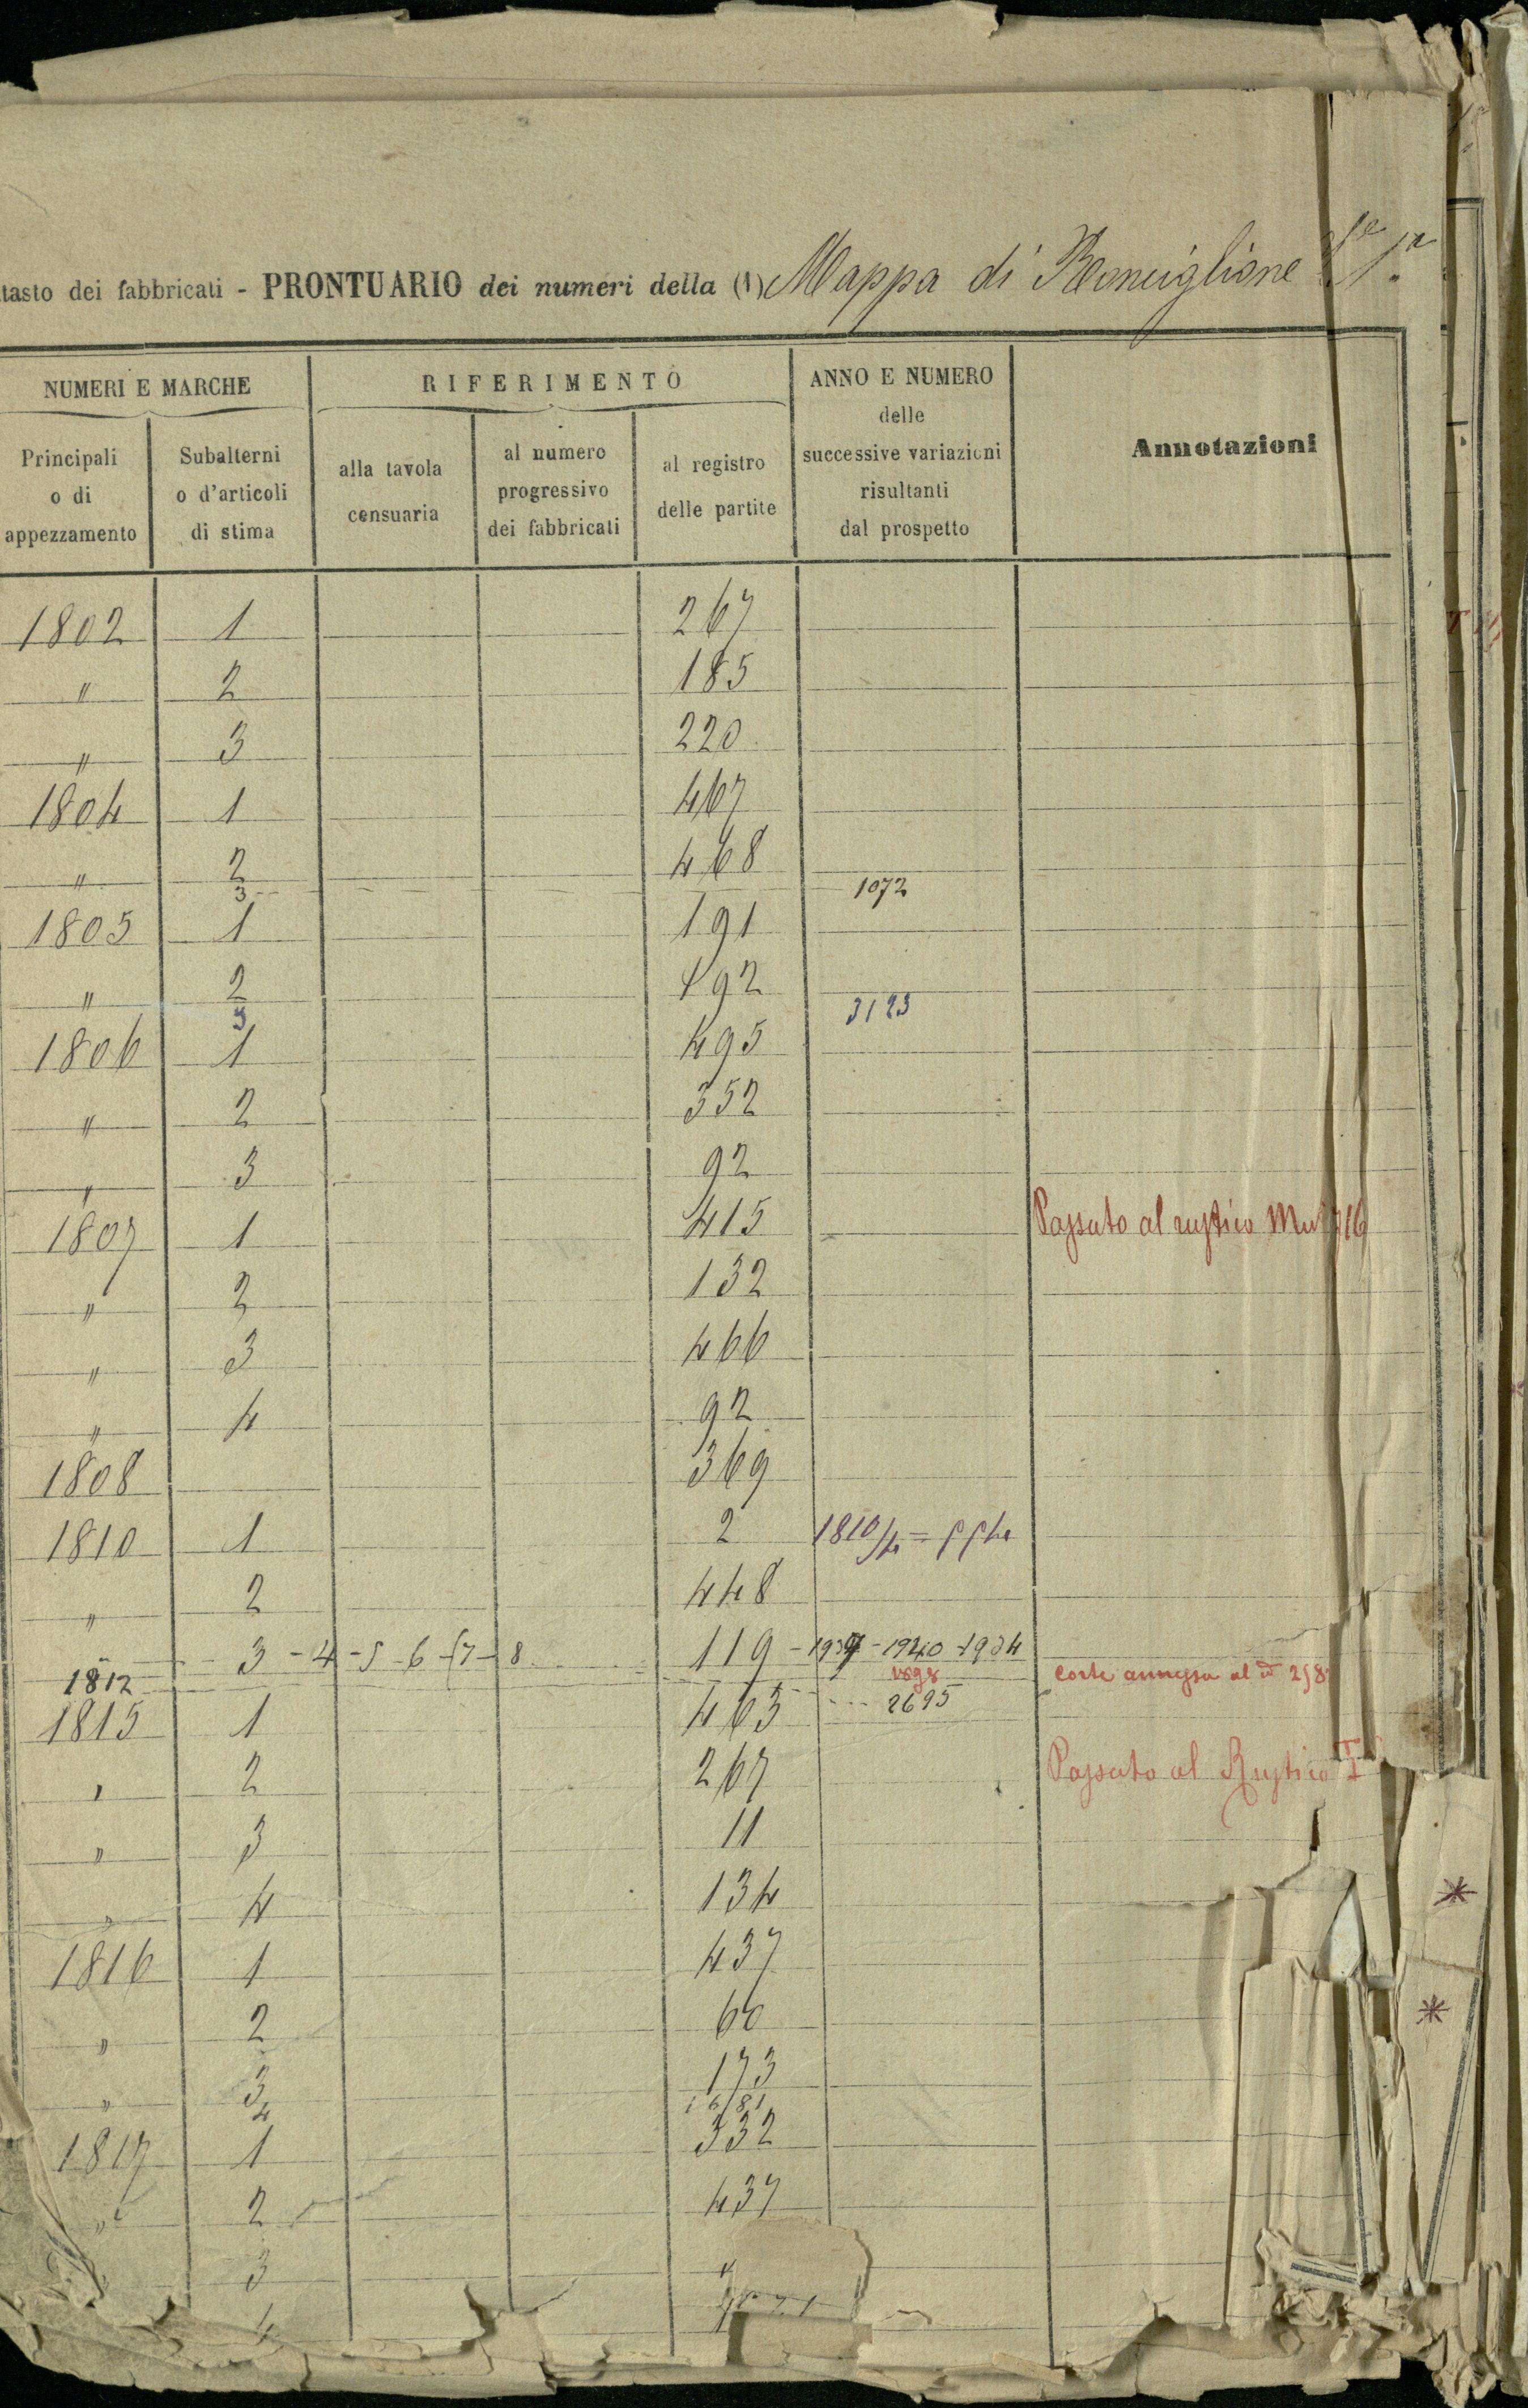 tasto dei fabbricati - PRONTUARIO dei numeri della (1) Mappa di Ronciglione Se 1a
NUMERI E MARCHE
RIFERIMENTO
ANNO E NUMERO
delle
successive variazioni
risultanti
dal prospetto
Annotazioni
Principali
o di
appezzamento
Subalterni
o d'articoli
di stima
alla tavola
censuaria
al numero
progressivo
dei fabbricati
al registro
delle partite
1802 1 267
" 2 185
" 3 220
1804 1 467
" 2 468
3 1072
1805 1 191
" 2 492
3 3123
1806 1 495
" 2 352
" 3 92
1807 1 415 Passato al rustico 716
" 2 132
" 3 466
" 4 92
1808 369
1810 1 2 1810/4 =
" 2 448
" 3 - 4 - 5 - 6 - 7 - 8 119 - 1939 - 1940 - 1934
1812 corte annessa al 258
1815 1 463 2695
" 2 267 Passato al Rustico I
" 3 11
" 4 134
1816 1 437
" 2 60
" 3 173
4 1681
1817 1 332
" 2 437
" 3
4